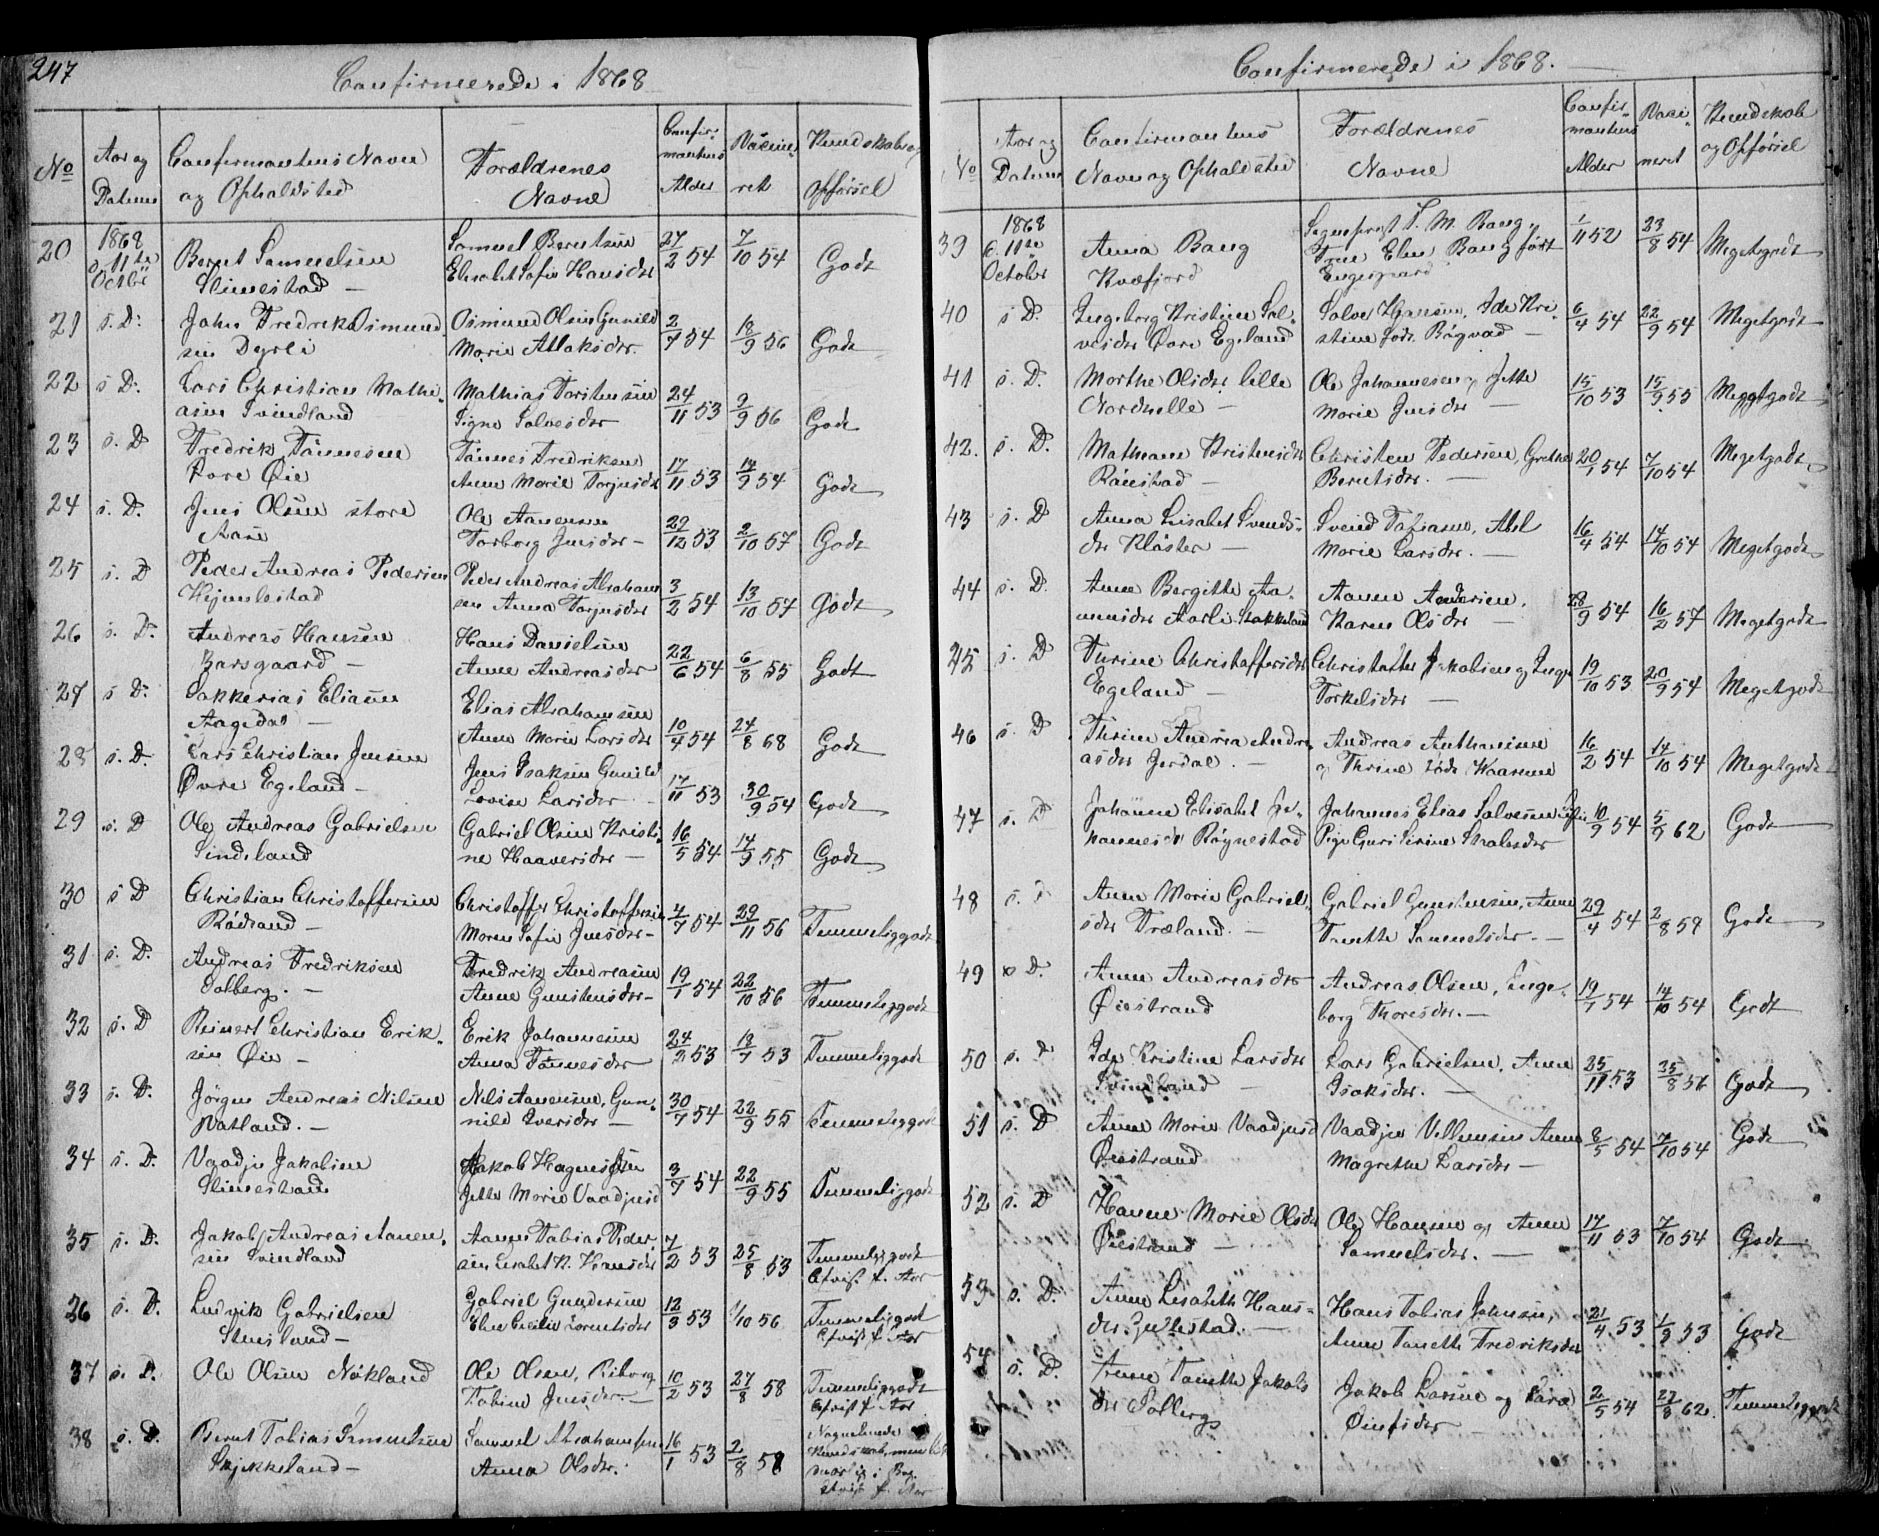 247
Confirmerede i 1868
No
Aar og
Datum
Confirmantens Navn
og Opholdsted
Forældrenes
Navne
Confir-
mantens
Alder
Vaccine-
ret
Kundskab og
opførsel
20
1868
d. 11te
Octbr
Bernt Samuelsen
Slimestad
Samuel Berntsen
Elisabet Sofie Hansdr
27/2 54
7/10 54
Godt
21
s. D.
John Fredrik Osmund-
sen Dyrli
Osmund Olsen Gunild
Marie Atlaksdr.
2/7 54
18/9 56
Godt
22
s D.
Lars Christian Mathi-
asen Svindland
Mathias Torstensen
Signe Salvesdr
24/11 53
9/9 56
Godt
23
s. D
Fredrik Tønnesen
Øie
Tønnes Fredriksen
Anne Marie Torjusdr
17/11 53
14/9 54
Godt
24
s. D.
Jens Olsen store
Ole Aanensen
Torborg Jensdr
29/12 53
2/10 57
Godt
25
s. D
Peder Andreas Pedersen
Hejmlestad
Peder Andreas Abraham
sen Anna Torjusdr
3/2 54
13/10 57
Godt
26
s. D.
Andreas Hansen
Barsgaard
Hans Danielsen
Anne Andreasdr
22/6 54
6/8 55
Godt
27
s D.
Sakkerias Eliasen
Aagedal
Elias Abrahamsen
Anne Marie Larsdr
10/4 54
24/8 68
Godt
28
s. D.
Lars Christian Jensen
Øvre Egeland
Jens Isaksen Gunild
Lovise Larsdr
17/11 53
30/9 54
Godt
29
s. D
Ole Andreas Gabrielsen
Sindland
Gabriel Olsen Kristi-
ne Haaversdr
16/5 54
14/9 55
Godt
30
s D
Christian Christoffersen
Rødsand
Christoffer Christoffersen
Maren Sofie Jensdr
4/7 54
29/11 56
Temmeliggodt
31
s. D.
Andreas Fredriksen
Solberg.
Fredrik Andreasen
Anne Gunstensdr
19/1 54
22/10 56
Temmeliggodt
32
s. D
Reinert Christian Erik-
sen Øie
Erik Johannesen
Anna Tønnesdr
24/3 53
18/7 53
Temmeliggodt
33
s. D.
Jørgen Andreas Nilsen
Vatland.
Nils Aanensen, Gun-
nild Iversdr
30/7 54
22/9 55
Temmeliggodt
34
s. D.
Vaadju Jakobsen
Slimestad
Jakob Hagensen
Jette Marie Vaadjusd
3/7 54
22/9 55
Temmeliggodt
35
s. D.
Jakob Andreas Aanen-
sen Svindland
Aanen Tobias Peder
sen Lisabet K. Hansdr
7/2 53
25/8 53
Temmeliggodt
Afvist f. Aar
36
s. D.
Ludvik Gabrielsen
Stensland
Gabriel Gundersen
Elen Cecilie Lorentsdr
12/3 53
1/10 56
Temmeliggodt
Afvist f. Aar
37
s. D.
Ole Olsen Nøkland
Ole Olsen, Reborg
Tobine Jensdr.
10/2 53
27/8 58
Temmeliggodt
Afvist f. Aar
38
s. D.
Bernt Tobias Samuelsen
Skjekkeland
Samuel Abrahamsen
Anna Olsdr.
16/1 53
2/8 58
Nogenlunde
Kundskab, men
Afvist f. Aar
Confirmerede i 1868.
No
Aar og
Datum
Confirmantens
Navn og Opholdsted
Forældrenes
Navne
Confir-
mantens
Alder
Vacci-
neret
Kundskab
og Opførsel
39
1868
d. 11te
October
Anna Bang
Kvæfjord
Sognepræst T. M. Bang,
Frue Elen Bang født
1/11 52
23/8 54
Megetgodt
40
s D.
Ingeborg Kristine Sal-
vesdr Øvre Egeland
Salve Hansen, Ida Kri-
stine født Bøgvad
6/4 54
22/9 54
Megetgodt
41
s. D.
Marthe Olsdr lille
Nordhelle
Ole Johannesen og Jette
Marie Jensdr
15/10 53
15/9 55
Megetgodt
42.
s. D.
Matheane Kristensdr
Rønestad
Christen Pedersen, Grethe
Berntsdr.
20/1 54
7/10 54
Megetgodt
43
s. D
Anna Lisabet Svends-
dr Kloster
Svend Tobiasen, Abel
Marie Larsdr.
16/4 54
14/10 54
Megetgodt
44
s. D.
Anne Bergitte Aa-
nensdr Aarli
Aanen Andersen,
Karen Olsdr
28/9 54
16/2 57
Megetgodt
45
s. D
Thrine Christoffersdr
Egeland
Christoffer Jakobsen og Inge
Torkelsdr
19/10 53
20/9 54
Megetgodt
46
s. D
Thrine Andrea Andre
asdr Jerdal.
Andreas Anthonisen
og Thrine født Kaarene
16/2 54
14/10 54
Megetgodt
47
s. D
Johanne Elisabet Jo-
hannesdr Røynestad
Johannes Elias Salvesen
Pige Guri Serine
10/9 54
5/9 62
Godt
48
s. D
Anne Marie Gabriels-
dr Træland.
Gabriel Gunstensen, Anne
Tanette Samuelsdr.
29/4 54
2/8 59
Godt
49
s D.
Anne Andreasdr
Øiestrand
Andreas Olsen, Inge-
borg Thoresdr.
19/7 54
14/10 54
Godt
50
s. D
Ida Kristine Larsdr
Svindland
Lars Gabrielsen, Anne
Isaksdr.
25/11 53
25/8 56
Godt
51
s. D
Anne Marie Vaadjusd
Øiestrand
Vaadju Villumsen Anne
Magrethe Larsdr
8/5 54
7/10 54
Godt
52
s. D
Hanne Marie Olsdr
Øiestrand
Ole Hansen og Anne
Samuelsdr.
17/11 53
7/10 54
Godt
53
s. D.
Anne Lisabeth Hans-
dr.
Hans Tobias Johnsen,
Anne Tanette Fredriksdr
21/4 53
1/9 53
Godt
54
s. D.
Anne Tanette Jakobs
dr Solberg
Jakob Larsen og Sara
2/5 54
27/8 62.
Temmeliggodt